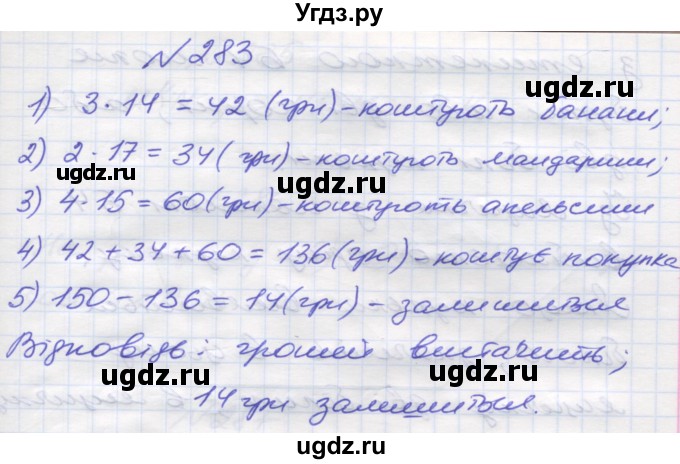 Угдз.ру
№ 283
1) 3 · 14 = 42 (грн) - коштують банани;
2) 2 · 17 = 34 (грн) - коштують мандарини;
3) 4 · 15 = 60 (грн) - коштують апельсини
4) 42 + 34 + 60 = 136 (грн) - коштує покупка
5) 150 - 136 = 14 (грн) - залишиться
Відповідь: грошей вистачить;
14 грн залишиться.
ugdz.ru
ugdz.ru
ugdz.ru
ugdz.ru
ugdz.ru
ugdz.ru
ugdz.ru
ugdz.ru